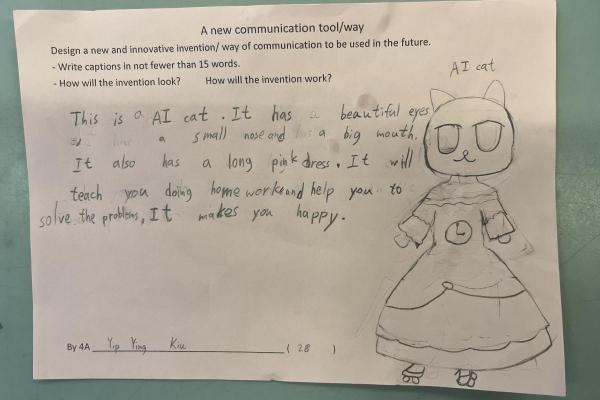 A new communication tool/way
Design a new and innovative invention/ way of communication to be used in the future.
- Write captions in not fewer than 15 words.
- How will the invention look? How will the invention work?
AI cat
This is a AI cat. It has a beautiful eyes
a small nose and has a big mouth.
It also has a long pink dress. It will
teach you doing homework and help you to
solve the problems, It makes you happy.
By 4A Yip Ying Kiu ( 28 )